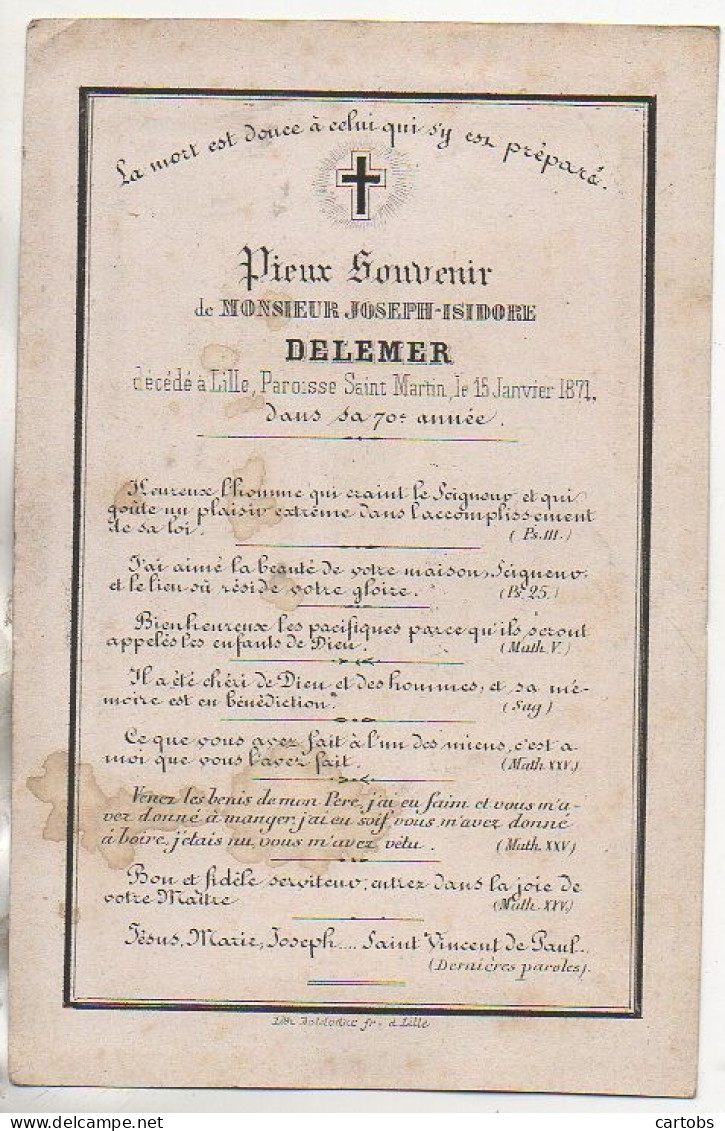 La mort est douce à celui qui s'y est préparé.
Pieux Souvenir
de MONSIEUR JOSEPH-ISIDORE
DELEMER
décédé à Lille, Paroisse Saint Martin, le 15 Janvier 1871,
dans sa 70e année.
Heureux l'homme qui craint le Seigneur et qui
goûte un plaisir extrême dans l'accomplissement
de sa loi. (Ps. III.)
J'ai aimé la beauté de votre maison, Seigneur,
et le lieu où réside votre gloire. (Ps. 25.)
Bienheureux les pacifiques parce qu'ils seront
appelés les enfants de Dieu. (Math. V.)
Il a été chéri de Dieu et des hommes, et sa mé-
moire est en bénédiction. (Sag)
Ce que vous avez fait à l'un des miens, c'est a
moi que vous l'avez fait. (Math. XXV.)
Venez les benis de mon Pere, j'ai eu faim et vous m'a-
vez donné à manger, j'ai eu soif, vous m'avez donné
à boire, j'etais nu, vous m'avez vêtu. (Math. XXV)
Bon et fidèle serviteur, entrez dans la joie de
votre Maître (Math. XXV.)
Jésus, Marie, Joseph.... Saint Vincent de Paul...
(Dernières paroles).
Lith. fr. à Lille
cartobs